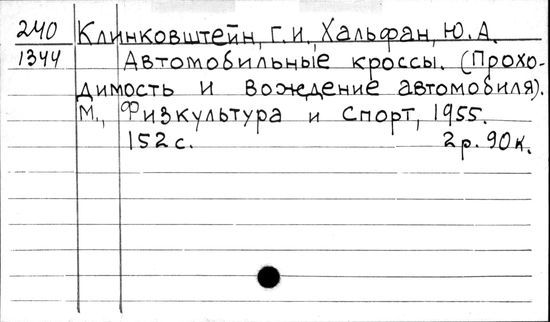 240 Клинковштейн, Г.И., Хальфан, Ю.А.
1344 Автомобильные кроссы. (Прохо-
димость и вождение автомобиля).
М., Физкультура и спорт, 1955.
152 с. 2 р. 90 к.